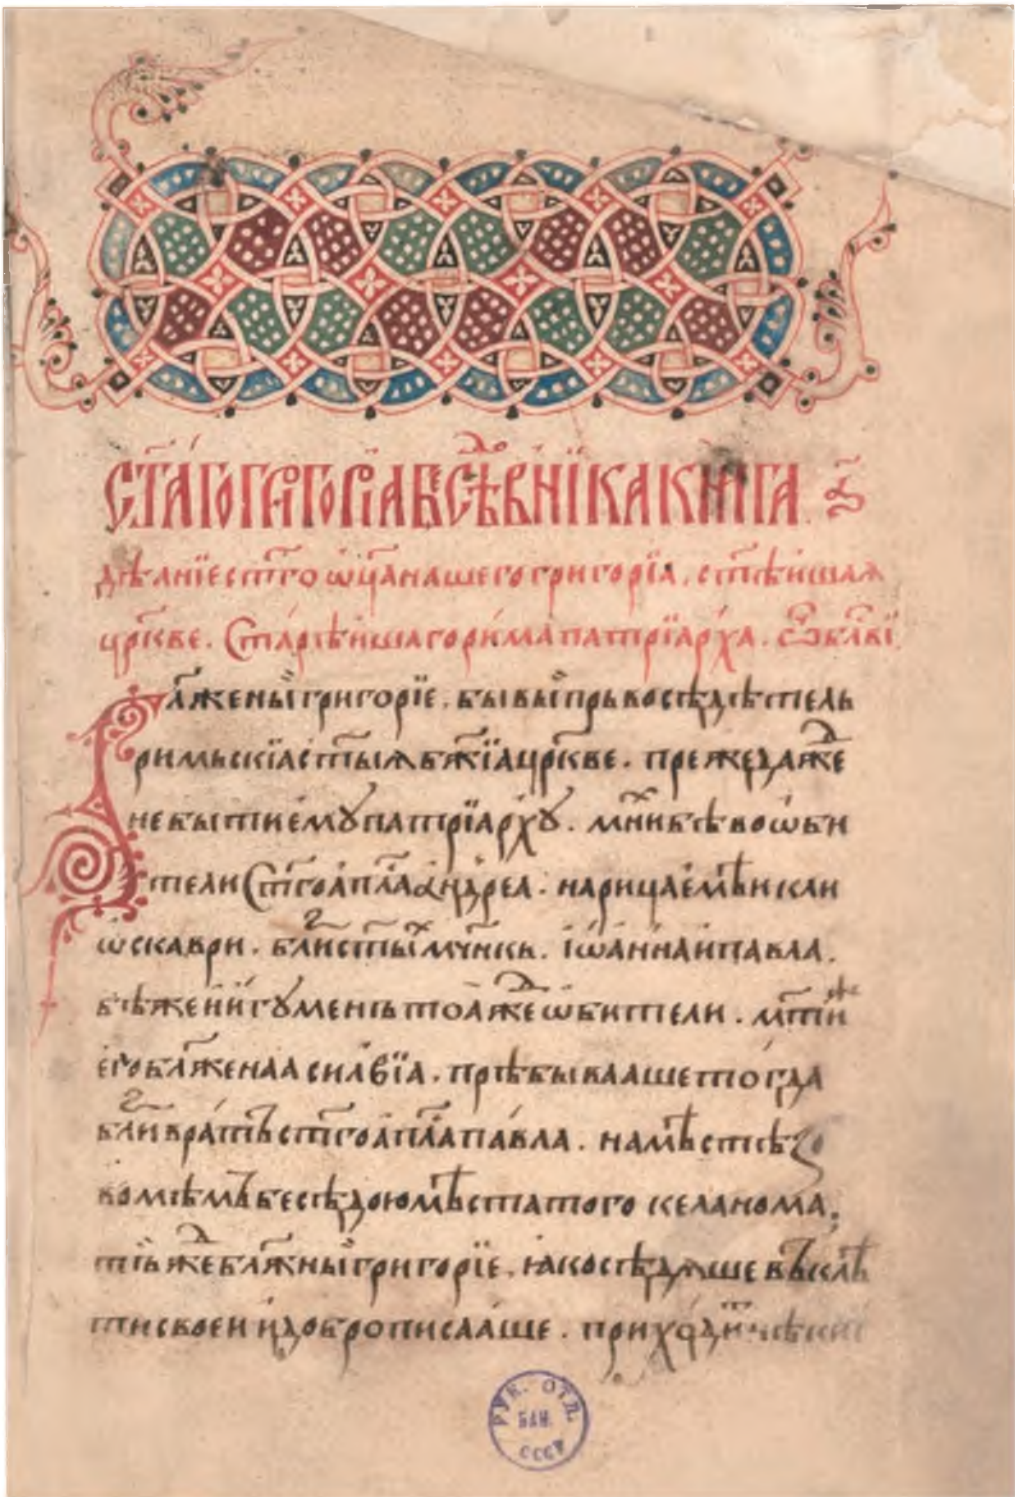 СТ҃АГО ГРИГОРIА БЕСѢДОВНИКА КНИГА
дѣанїе ст҃го ѿц҃а нашего григорїа. ст҃ѣишаа
цр҃кве. Старѣишаго рима патрїарха. Ѿ бл҃ви
Блаженыи григорїе. бывыи прьвосѣдѣтель
римьскїа ст҃ыѧ бж҃їа цр҃кве. преже даже
не быти емꙋ патрїархꙋ. мнихь бѣ во ѡби
тели Ст҃го ап҃ла андреа. нарицаемѣи кли
ѡскаври. близь ст҃ых мч҃нкь. їѡанна и павла.
бѣже и игꙋмень тоаже ѡбители. мт҃и же
его блаженаа силвїа. прѣбывааше тогда
близ врать ст҃го ап҃ла павла. на мѣстѣ зо
вомѣмь беседою мѣста того келанома.
тъ же блаженыи григорїе. ꙗко сѣдѧше въ клѣ
ти своеи и доброписааше. приходит
РУК. ОТД.
БАН.
СССР